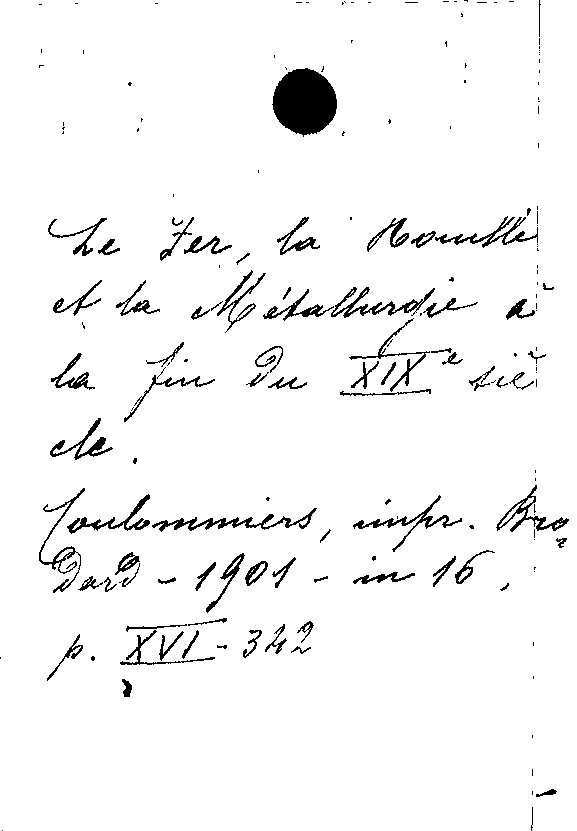 Le Fer, la Houille
et la Métallurgie à
la fin du XIXe siè
cle.
Coulommiers, impr. Bro
dard - 1901 - in 16,
p. XVI - 342